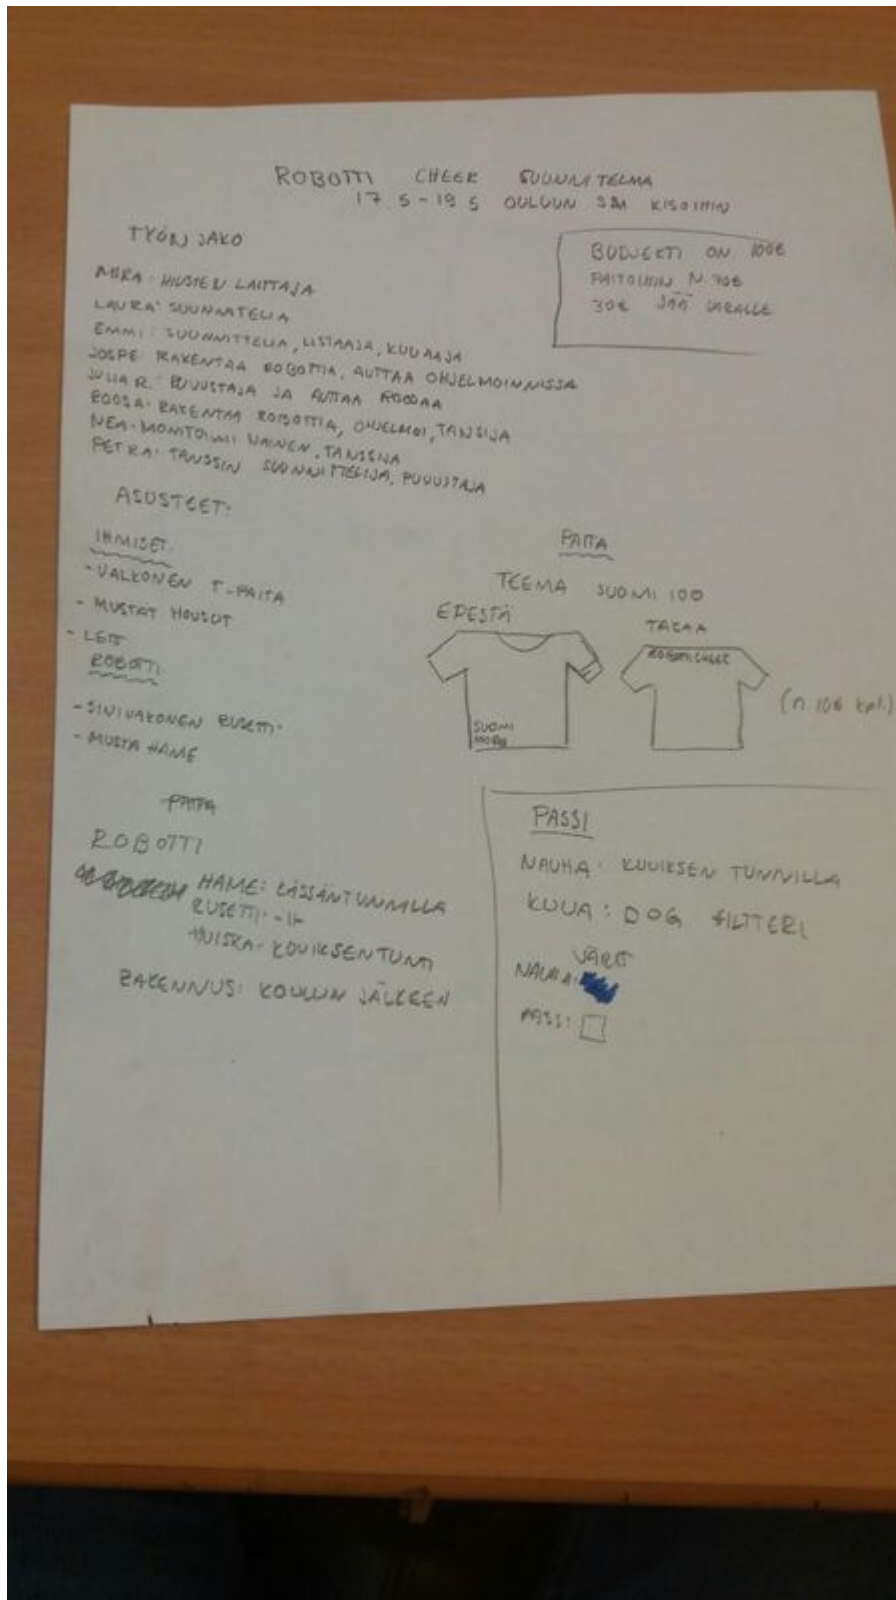 ROBOTTI CHEER SUUNNITELMA
17.5-19.5 OULUUN SM KISOIHIN
TYÖNJAKO
BUDJEKTI ON 100€
PAITOIHIN N. 70€
30€ JÄÄ VARALLE
MIRA: HIUSTEN LAITTAJA
LAURA: SUUNNATELIA
EMMI: SUUNNITTELIA, LISTAAJA, KUVAAJA
JOSPE: RAKENTAA ROBOTTIA, AUTTAA OHJELMOINNISSA
JULIA R: PUVUSTAJA JA AUTTAA ROOSAA
ROOSA: RAKENTAA ROBOTTIA, OHJELMOI, TANSSIJA
NEA: MONITOIMI NAINEN, TANSSIJA
PETRA: TANSSIN SUUNNITTELIJA, PUVUSTAJA
ASUSTEET:
IHMISET:
- VALKONEN T-PAITA
- MUSTAT HOUSUT
- LETIT
ROBOTTI:
- SINIVAKONEN RUSETTI
- MUSTA HAME
PAITA
TEEMA SUOMI 100
EDESTÄ
TAKAA
ROBOTTI CHEER
SUOMI
(n. 10€ kpl.)
PAITA
ROBOTTI
HAME: KÄSSÄNTUNNILLA
RUSETTI: -11-
HUISKA: KUVIKSENTUNTI
RAKENNUS: KOULUN JÄLKEEN
PASSI
NAUHA: KUVIKSEN TUNNILLA
KUVA: DOG FILTTERI
VÄRIT
NAUHA:
PASSI: